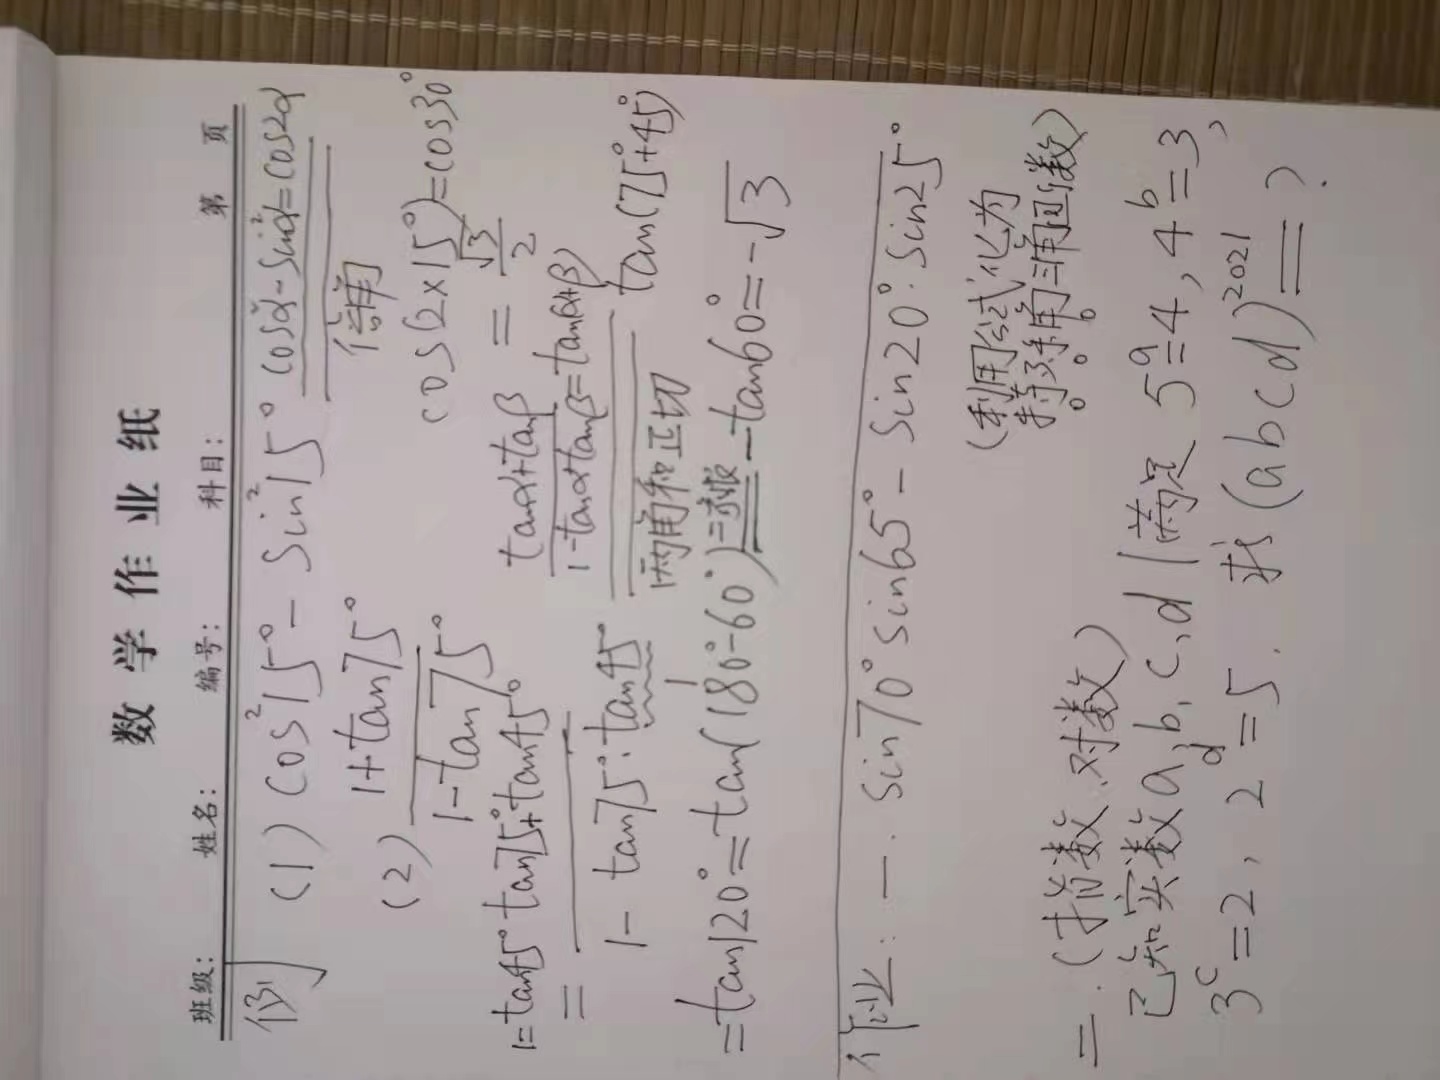 数学作业纸
班级: 姓名: 编号: 科目: 第 页
例 (1) cos²15°-sin²15° cos²α-sin²α=cos2α
倍角
(2) (1+tan75°)/(1-tan75°) cos(2×15°)=cos30°
= √3/2
1=tan45°
= (tan75°+tan45°)/(1-tan75°·tan45°) (tanα+tanβ)/(1-tanα·tanβ)=tan(α+β)
1
两角和正切 tan(75°+45°)
=tan120°=tan(180°-60°)= -tan60°=-√3
作业: 一. sin70°sin65°-sin20°·sin25°
(利用公式化为
特殊角三角函数)
二.(指数、对数)
已知实数a,b,c,d满足 5^a=4, 4^b=3,
3^c=2, 2^d=5. 求(abcd)^2021=?